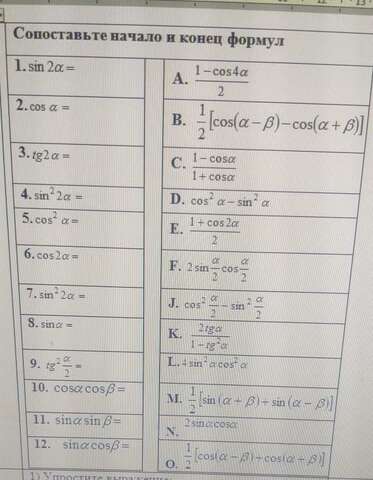 Сопоставьте начало и конец формул
1. sin 2α =
A. (1−cos4α)/2
2. cos α =
B. 1/2[cos(α − β)−cos(α + β)]
3. tg2α =
C. (1−cosα)/(1+cosα)
4. sin² 2α =
D. cos² α−sin² α
5. cos² α =
E. (1+cos2α)/2
6. cos2α =
F. 2sin α/2 cos α/2
7. sin² 2α =
J. cos² α/2 − sin² α/2
8. sinα =
K. 2tgα/(1−tg²α)
9. tg² α/2 =
L. 4sin² α cos² α
10. cosα cosβ =
M. 1/2[sin(α + β)+sin(α − β)]
11. sinα sinβ =
N. 2sinαcosα
12. sinαcosβ =
O. 1/2[cos(α − β)+cos(α + β)]
1) Упростите выражение